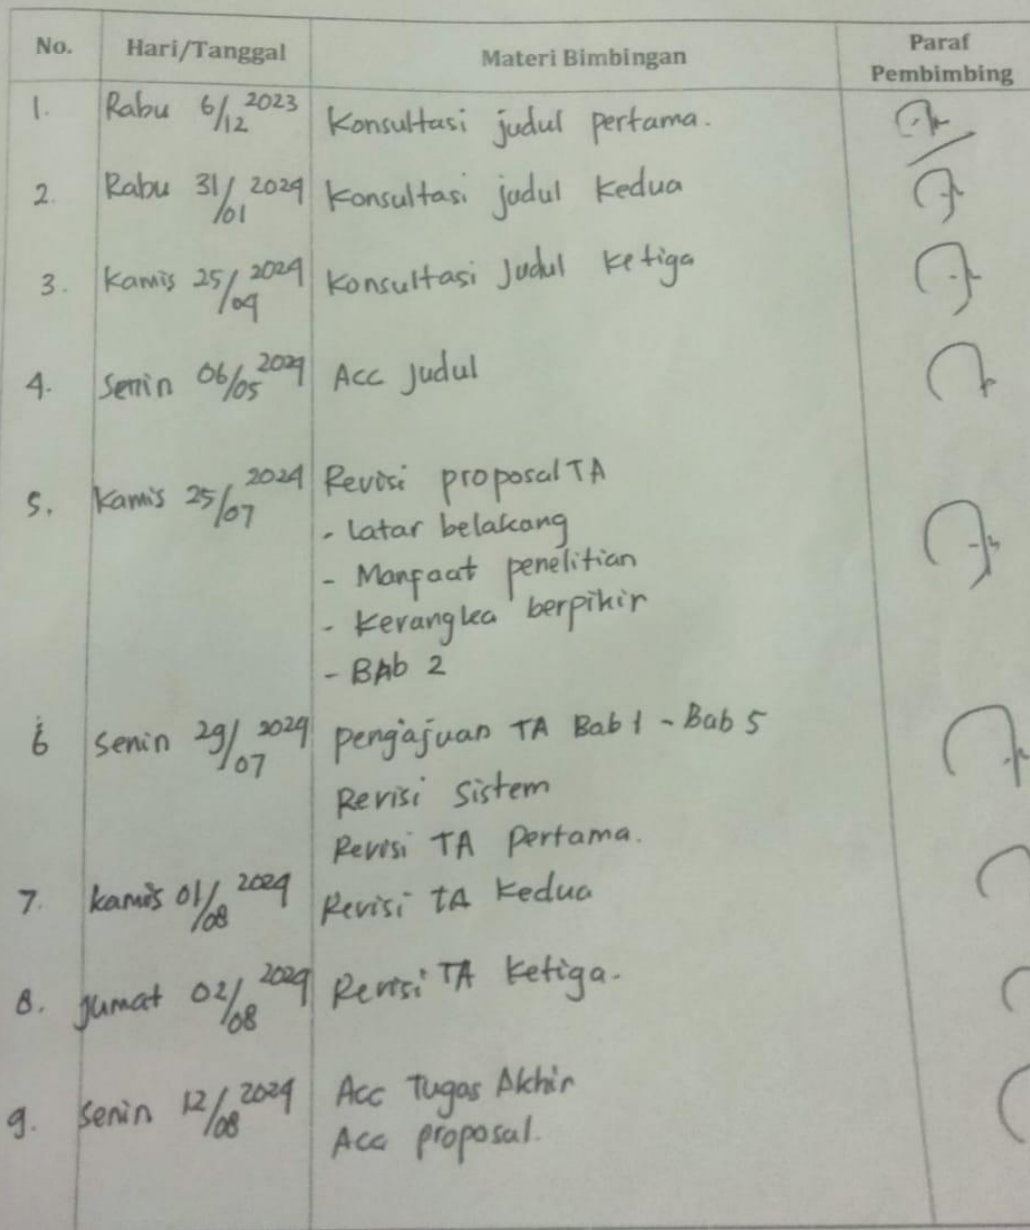 No. Hari/Tanggal Materi Bimbingan Paraf Pembimbing
1. Rabu 6/12 2023 Konsultasi judul pertama.
2. Rabu 31/01 2024 Konsultasi judul Kedua
3. Kamis 25/04 2024 Konsultasi Judul Ketiga
4. Senin 06/05 2024 Acc Judul
5. Kamis 25/07 2024 Revisi proposal TA
- Latar belakang
- Manfaat penelitian
- Kerangka berpikir
- BAb 2
6 Senin 29/07 2024 pengajuan TA Bab 1 - Bab 5
Revisi Sistem
Revisi TA Pertama.
7. kamis 01/08 2024 Revisi TA Kedua
8. Jumat 02/08 2024 Revisi TA Ketiga.
9. Senin 12/08 2024 Acc Tugas Akhir
Acc proposal.